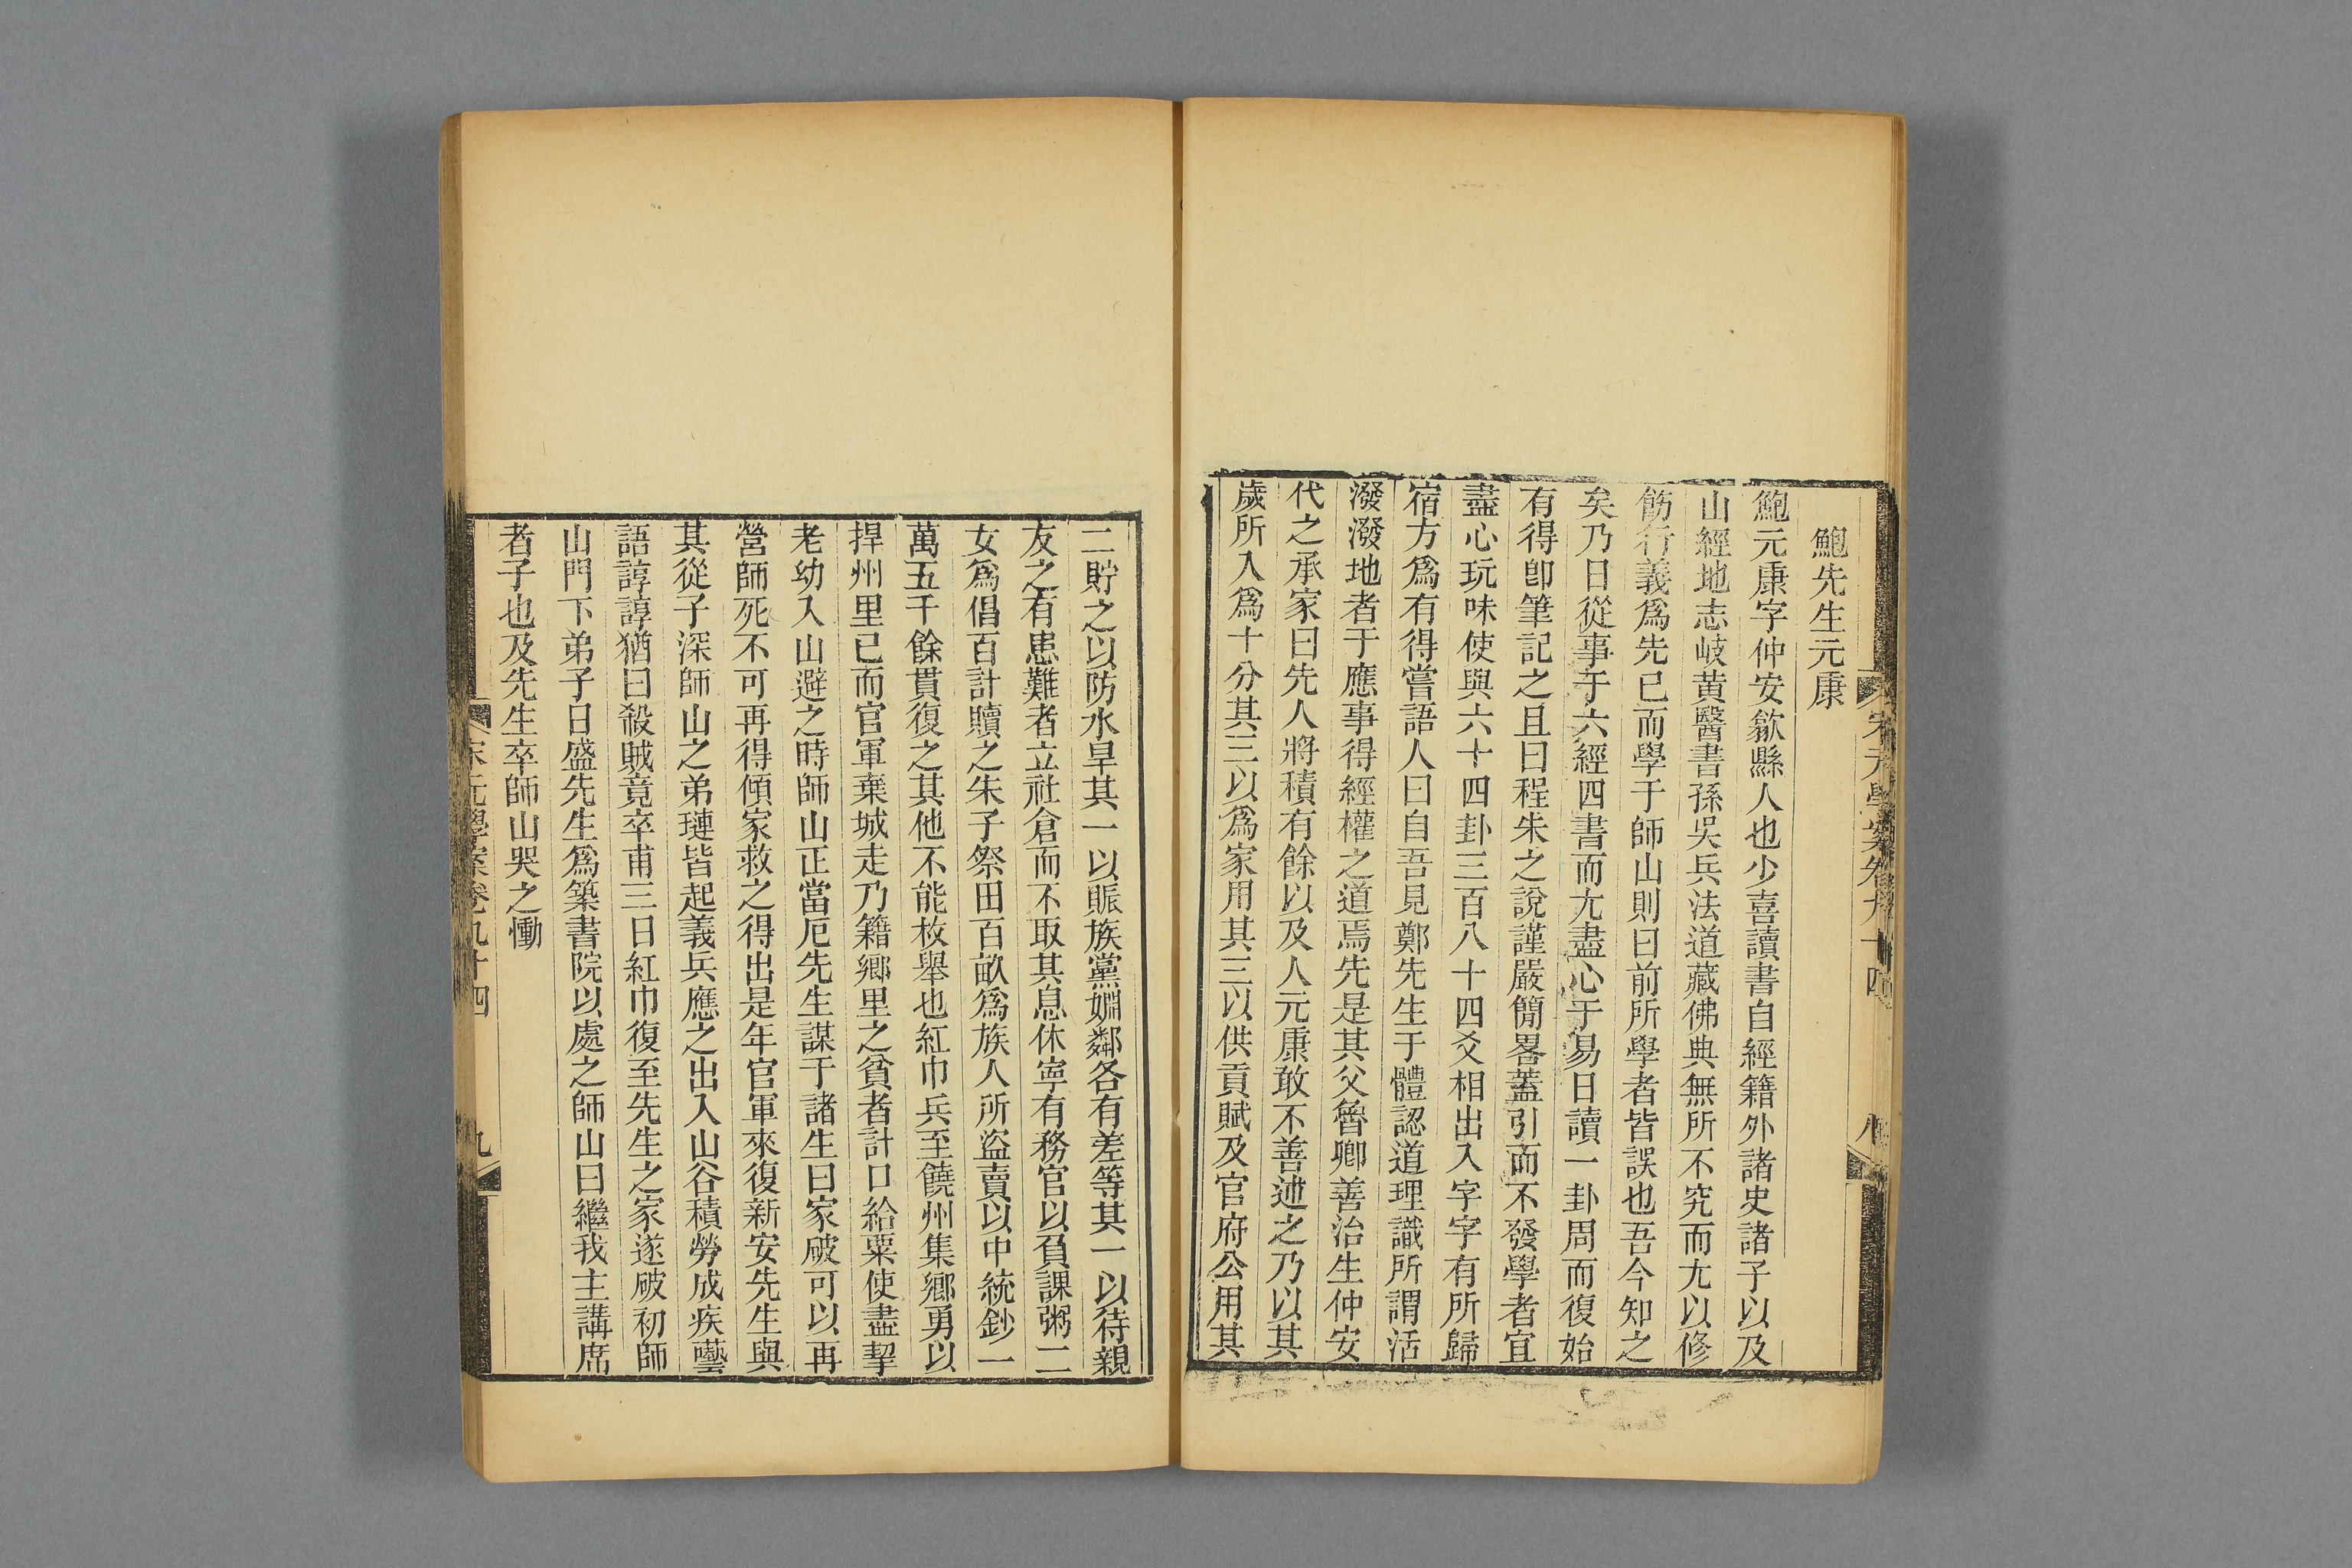 宋元學案卷九十四
八
鮑先生元康
鮑元康字仲安歙縣人也少喜讀書自經籍外諸史諸子以及
山經地志岐黃醫書孫吳兵法道藏佛典無所不究而尢以修
飭行義爲先已而學于師山則曰前所學者皆誤也吾今知之
矣乃日從事于六經四書而尢盡心于易日讀一卦周而復始
有得卽筆記之且曰程朱之說謹嚴簡畧蓋引而不發學者宜
盡心玩味使與六十四卦三百八十四爻相出入字字有所歸
宿方爲有得嘗語人曰自吾見鄭先生于體認道理識所謂活
潑潑地者于應事得經權之道焉先是其父魯卿善治生仲安
代之承家曰先人將積有餘以及人元康敢不善述之乃以其
歲所入爲十分其三以爲家用其三以供貢賦及官府公用其
二貯之以防水旱其一以賑族黨婣鄰各有差等其一以待親
友之有患難者立社倉而不取其息休寧有務官以負課粥二
女爲倡百計贖之朱子祭田百畝爲族人所盜賣以中統鈔一
萬五千餘貫復之其他不能枚舉也紅巾兵至饒州集鄉勇以
捍州里已而官軍棄城走乃籍鄉里之貧者計口給粟使盡挈
老幼入山避之時師山正當厄先生謀于諸生曰家破可以再
營師死不可再得傾家救之得出是年官軍來復新安先生與
其從子深師山之弟璉皆起義兵應之出入山谷積勞成疾囈
語諄諄猶曰殺賊竟卒甫三日紅巾復至先生之家遂破初師
山門下弟子日盛先生爲築書院以處之師山曰繼我主講席
者子也及先生卒師山哭之慟
宋元學案卷九十四
九